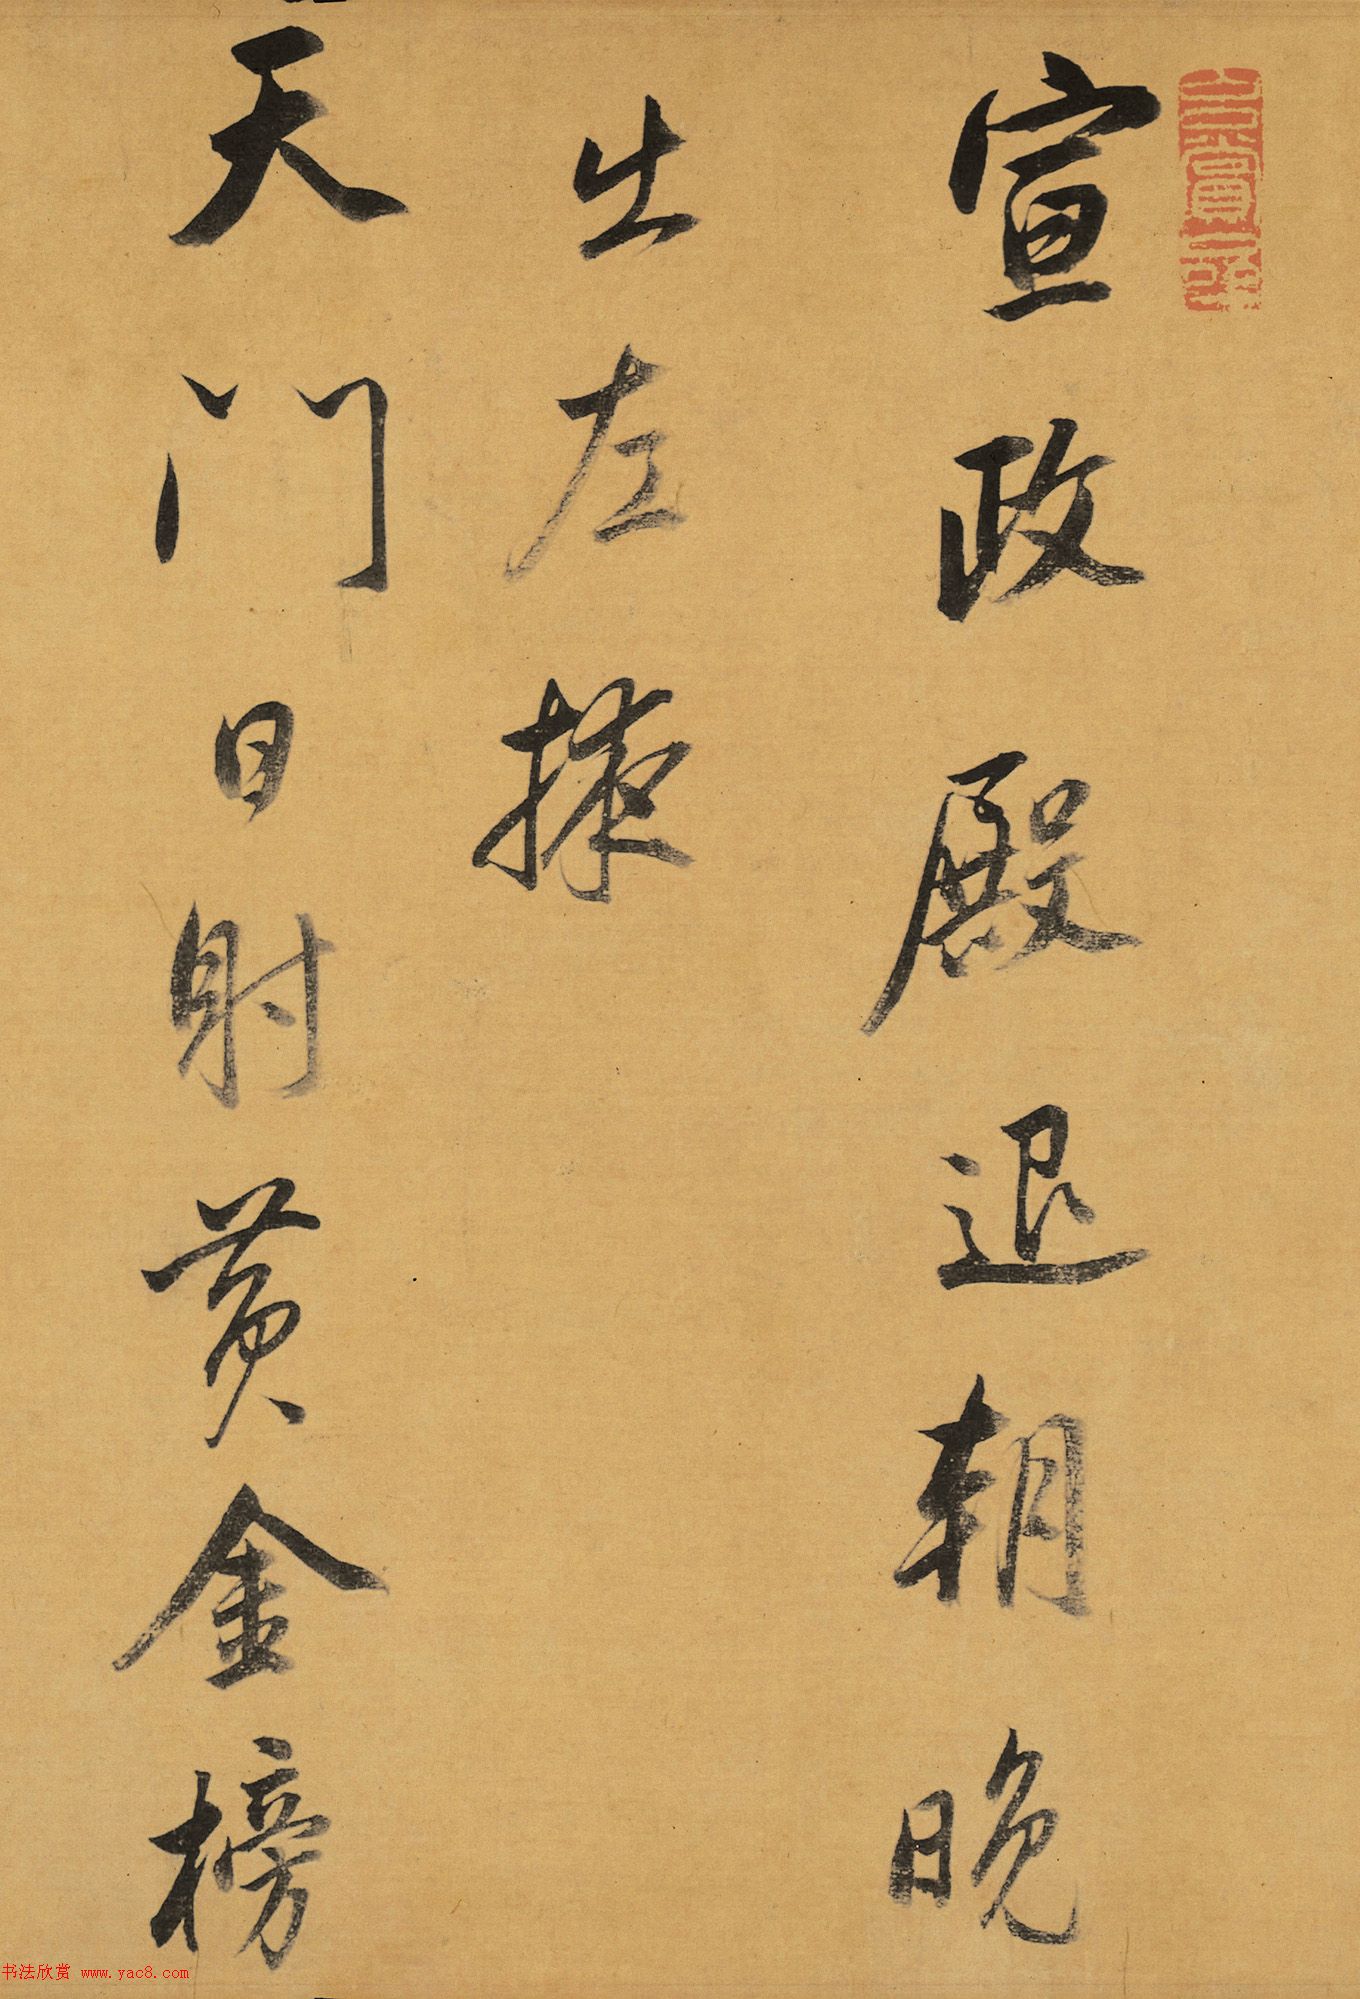 宣政殿退朝晚
出左掖
天門日射黄金榜
书法欣赏 www.yac8.com